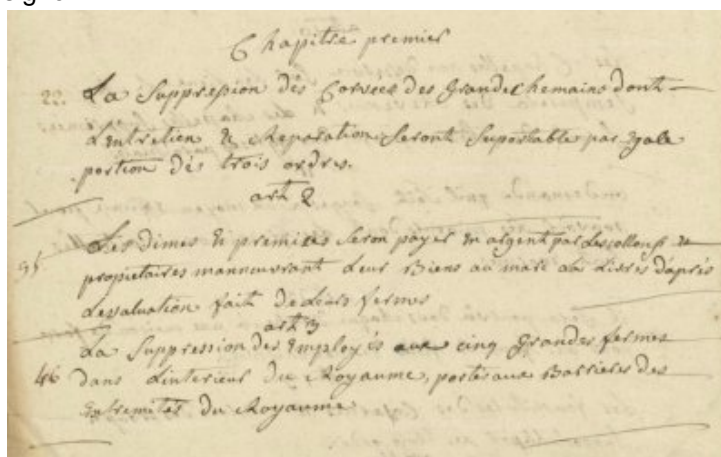 Chapitre premier
22. La Suppression des Corvees des Grande chemains dont
Lentretien & Reparation Seront Suportable par Egale
portion des trois ordres.
art 2
95 Les dimes & premices Seron payer En argent par Les collons &
propietaires mannœuvrant Leur Biens au marc La Livres daprés
Levaluation fait de Leurs fermes
art 3
La Suppression des Employés aux cinq Grandes fermes
46 dans Linterieur du Royaume, portes aux Barrieres des
Extremités du Royaume